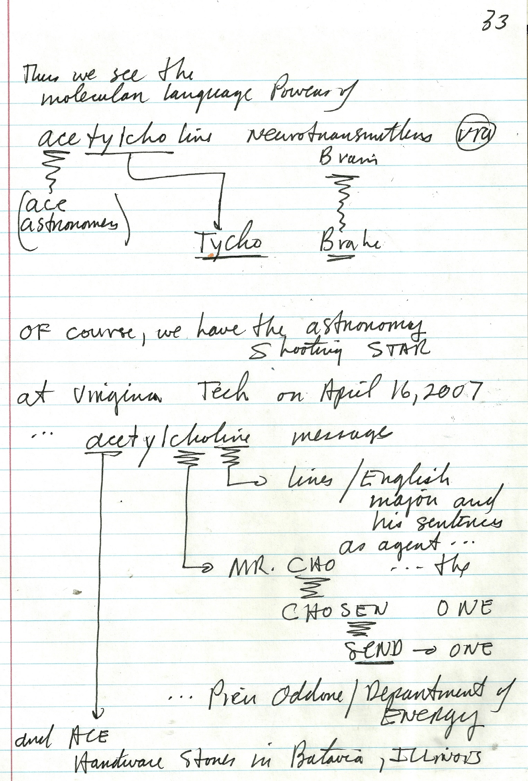 33
Thus we see the
molecular language Powers of
acetylcholine neurotransmitters via
Brain
(ace
astronomer)
Tycho Brahe
OF course, we have the astronomy
Shooting STAR
at Virginia Tech on April 16, 2007
... acetylcholine message
lines / English
major and
his sentences
as agent ...
MR. CHO ... the
CHOSEN ONE
SEND → ONE
... Pier Oddone / Department of
ENERGY
and ACE
Hardware Stores in Batavia, ILLINOIS